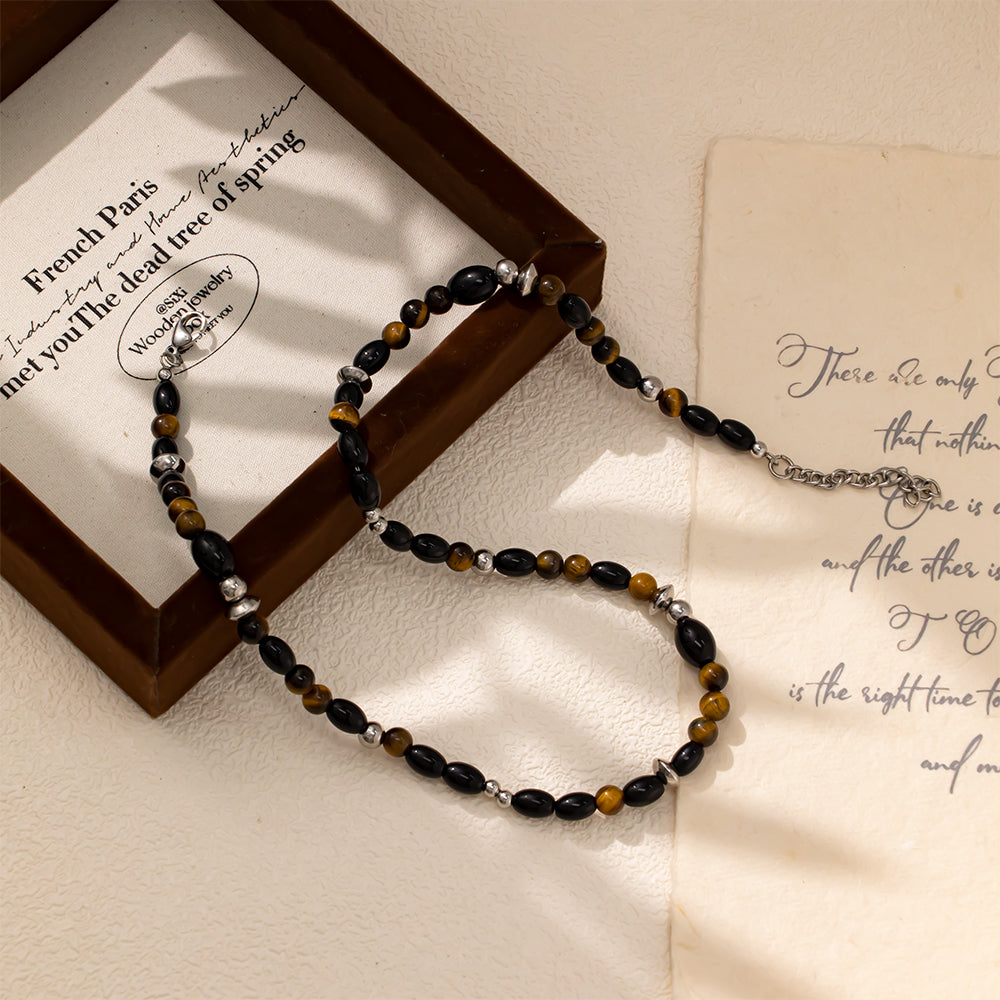 French Paris
Industry and Home Aesthetics
met youThe dead tree of spring
@SiXi
Wooden jewelry
box
There are only
that nothin
One is
and the other is
TO
is the right time to
and m